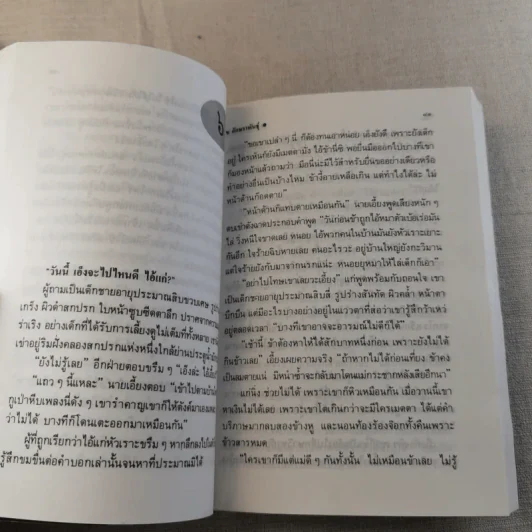 ๖
"วันนี้ เอ็งจะไปไหนดี ไอ้แก่?"
ผู้ถามเป็นเด็กชายอายุประมาณสิบขวบเศษ
เกร็ง ผิวดำสกปรก ใบหน้าซูบซีดตาลึก ปราศจากความ
ร่าเริง อย่างเด็กที่ได้รับการเลี้ยงดูไม่เต็มที่ทั้งหลาย
เข้าอยู่ริมฝั่งคลองสกปรกแห่งหนึ่งใกล้ย่านประตู
"ยังไม่รู้เลย" อีกฝ่ายตอบขรึม ๆ "เอ็งล่ะ
"แถว ๆ นี้แหละ" นายเอี้ยงตอบ "เช้าไปตาม
กูเป่าหีบเพลงนี่ดัง ๆ เขารำคาญเขาก็ให้ตังค์มาเอง
ว่าไม่ได้ บางทีก็โดนเตะออกมาเหมือนกัน"
ผู้ที่ถูกเรียกว่าไอ้แก่หัวเราะขรึม ๆ หากลึกลงไป
รู้สึกขมขื่นต่อคำบอกเล่านั้นจนหาที่ประมาณมิได้
"ขอเขาเปล่า ๆ นี่ ก็ต้องทนเอาหน่อย เอ็งยังดี เพราะยังเด็ก
อยู่ ใครเห็นก็ยังมีเมตตามั่ง ไอ้ข้านี่ซิ พอยื่นมือออกไปบางทีเขา
ก้มมองหน้าแล้วถามว่า มือนี่น่ะมีไว้สำหรับยื่นขออย่างเดียวหรือ
ทำอย่างอื่นเป็นบ้างไหม ข้างี้อายเหลือเกิน แต่ทำไงได้ล่ะ ไม่
หน้าด้านก็อดตาย"
"หน้าด้านก็แทบตายเหมือนกัน" นายเอี้ยงพูดเสียงหนัก ๆ
ตบเข่าดังฉาดประกอบคำพูด "วันก่อนข้าถูกไอ้หมาตัวเบ้อเร่อมัน
ไล่ วิ่งหนีใจขาดเลย์ หนอย ไอ้พวกคนในบ้านมันยังหัวเราะเยาะ
กันลึก ใจร้ายฉิบหายเลย คนอะไรวะ อยู่บ้านใหญ่ยังกะวิมาน
แต่ใจร้ายยังกับมาจากนรกแน่ะ หนอยยุหมาให้ไล่เด็กกันเอ้า"
"อย่าไปโทษเขาเลยวะเอี้ยง" แก่พูดพร้อมกับถอนใจ เขา
เป็นเด็กชายอายุประมาณสิบสี่ รูปร่างสันทัด ผิวคล้ำ หน้าตา
อยู่ตลอดเวลา "บางทีเขาอาจจะอารมณ์ไม่ดีก็ได้"
"เช้านี้ ข้าต้องหาให้ได้สักบาทหนึ่งก่อน เพราะยังไม่ได้
กินข้าวเลย" เอี้ยงเผยความจริง "ถ้าหากไม่ได้ก่อนเที่ยง ข้าคง
เป็นลมตายแน่ มิหน้าซ้ำจะกลับมาโดนแม่กระชากหนังหัวเสียอีกนา"
แก่นิ่ง ช่วยไม่ได้ เพราะเขาก็หิวเหมือนกัน เมื่อวานนี้เขา
หาเงินไม่ได้เลย เพราะเขาโตเกินกว่าจะมีใครเมตตา ได้แต่คำ
บริภาษมากลบสองข้างหู และนอนท้องร้องจ๊อกทั้งคืนเพราะ
ข้าวสารหมด
"ใครเขาก็มีแต่แม่ดี ๆ กันทั้งนั้น ไม่เหมือนข้าเลย ไม่รู้